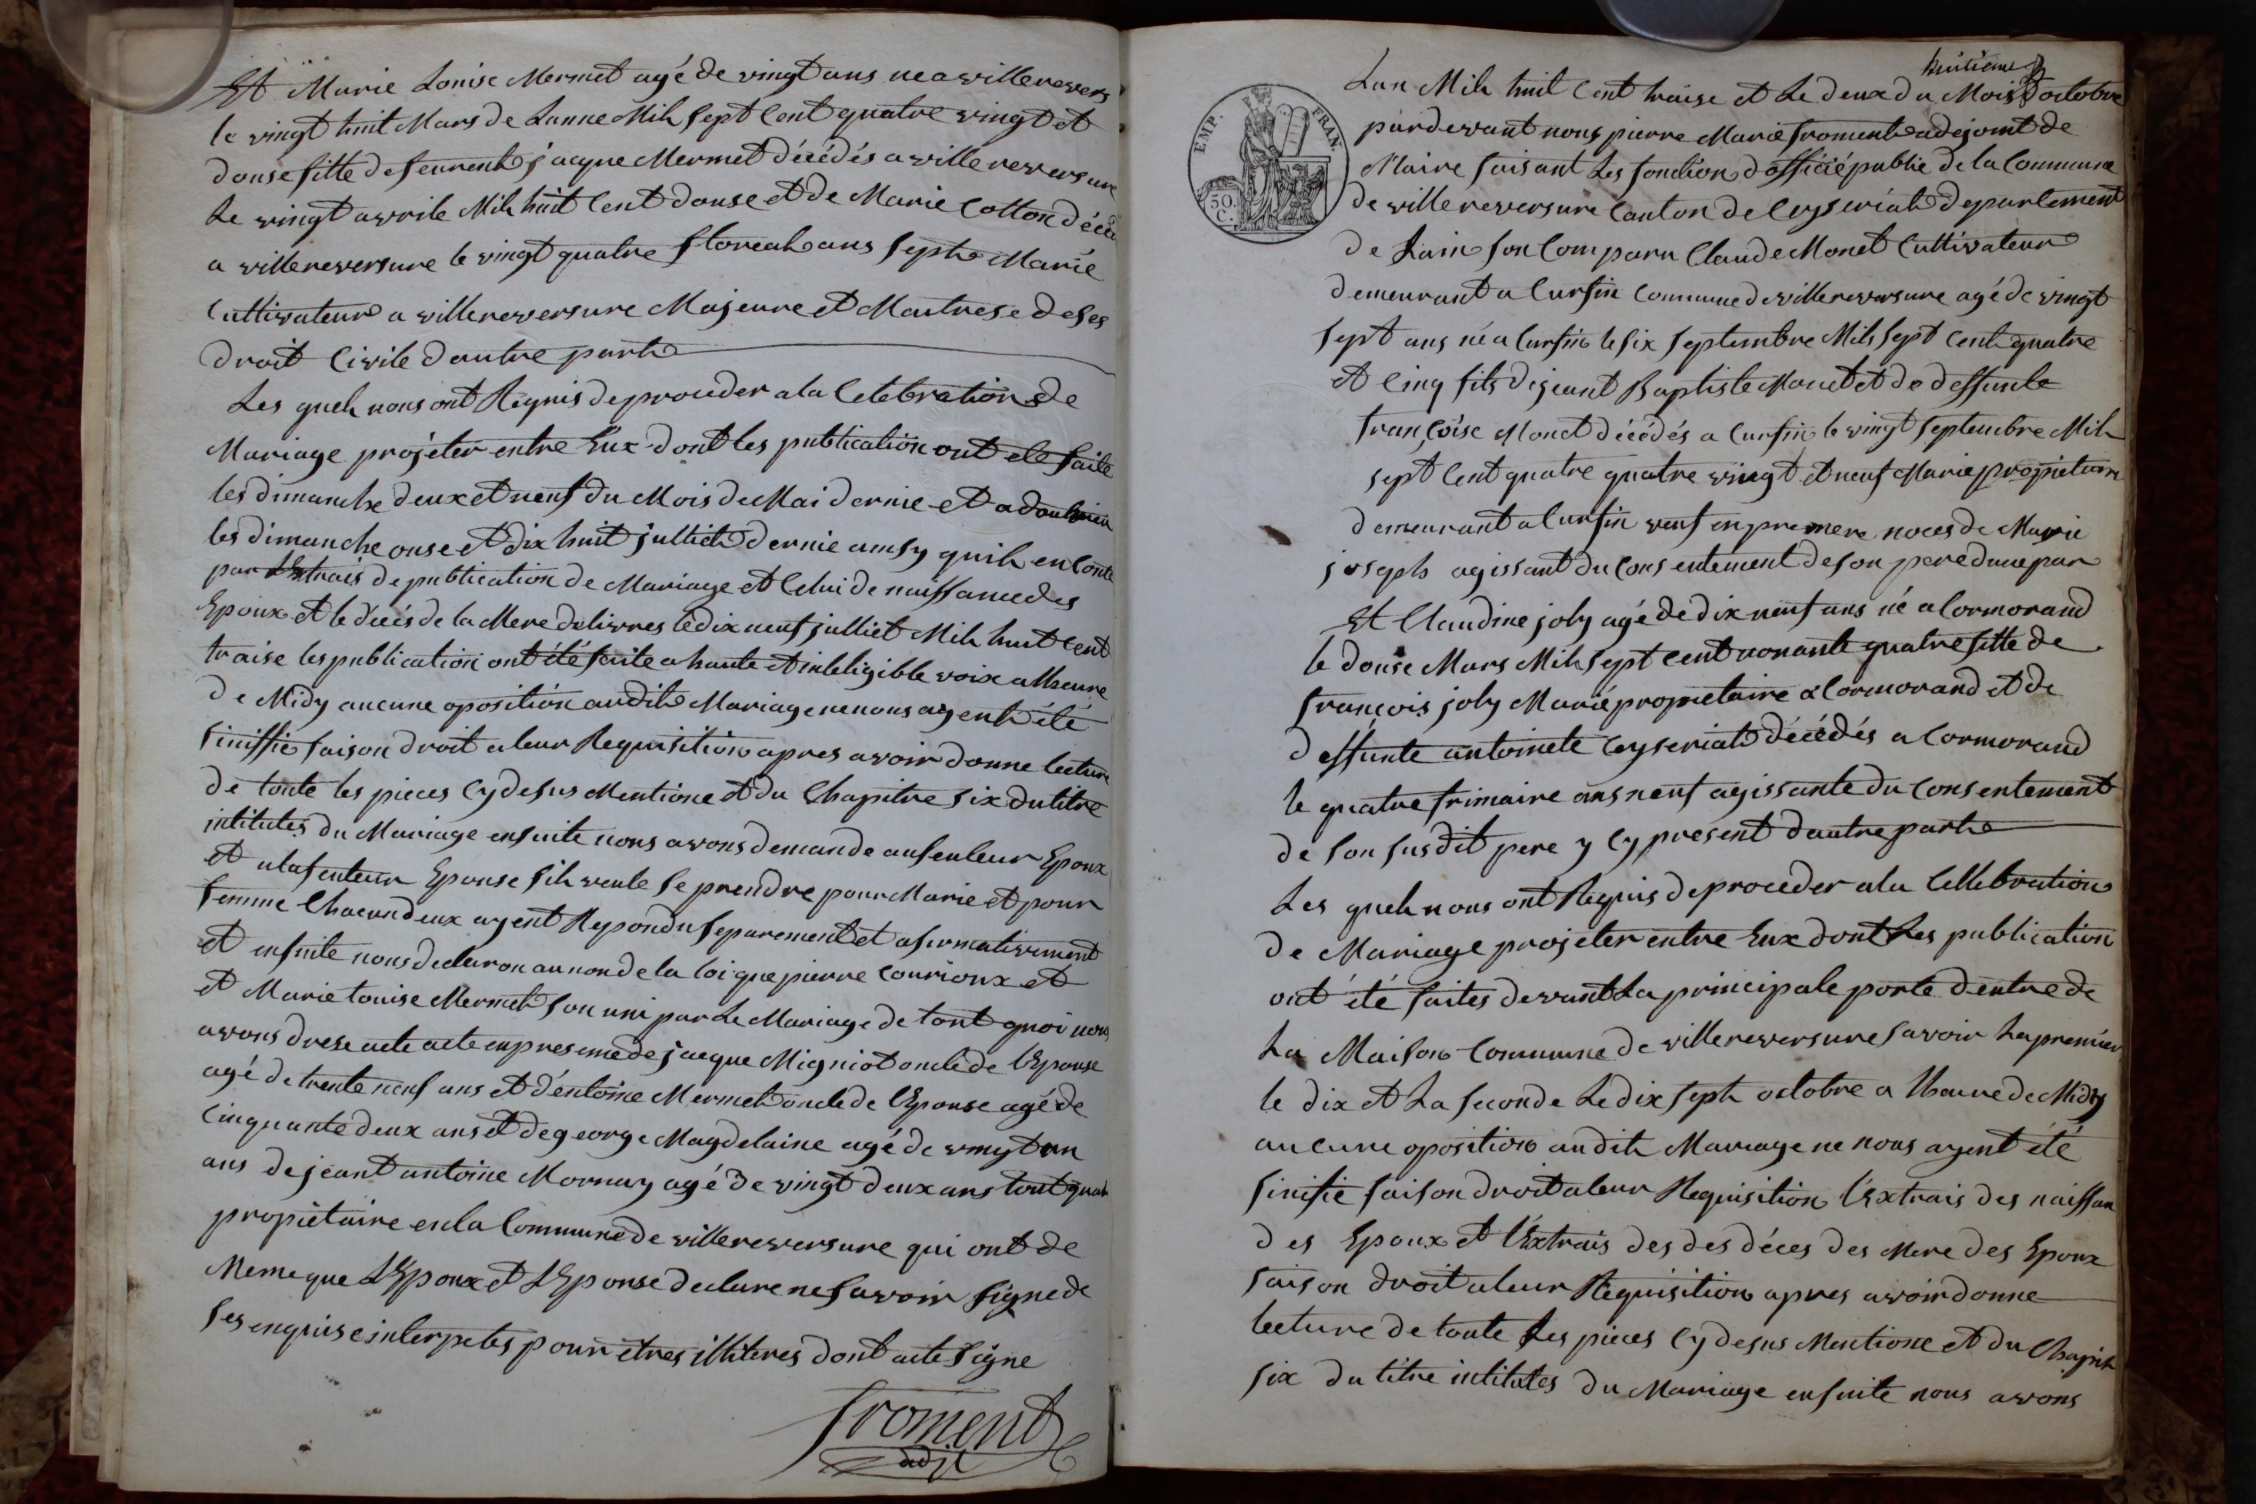 Et Marie Louise Mermet agé de vingt ans ne a villerevers
le vingt huit Mars de Lanne Mil sept Cent quatre vingt et
douse fille de feu jacque Mermet décédés a villereversure
Le vingt avrile Mil huit Cent douse et de Marie Cotton décéd
a villereversure le vingt quatre floreal ans sept Marié
Cultivateur a villereversure Majeure et Maitrese de ses
droit Civile dautre part
Les quel nous ont Requis de proceder a la Celebration de
Mariage projeter entre Eux dont les publication ont ete faite
les dimanche deux et neuf du Mois de Mai dernie et a
les dimanche onse et dix huit julliet dernie ainsy quil en Conte
par Lextrais de publication de Mariage et Celui de naissance des
Epoux et le décés de la Mere delivres le dix neuf julliet Mil huit Cent
traise les publication ont été faite a haute et inteligible voix a lheure
de Midy aucune oposition audit Mariage ne nous ayent été
siniffie faison droit a leur Requisition apres avoir donne lecture
de toute les pieces Cy desus Mentione et du Chapitre six du titre
intitules du Mariage ensuite nous avons demande au futeur Epoux
et a la futeur Epouse sil veule se prendre pour Marie et pour
femme Chacun deux ayent Repondu separement et afirmativement
et ensuite nous declaron au non de la loi que pierre Courioux et
et Marie Louise Mermet son uni par Le Mariage de tout quoi nous
avons drese acte acte en presence de jacque Migniot oncle de lEpouse
agé de trente neuf ans et dentoine Mermet oncle de lEpouse agé de
Cinquante deux ans et de george Magdelaine agé de vingt un
ans de jeant antoine Mornay agé de vingt deux ans tout quatr
propiétaire en la Commune de villereversure qui ont de
Meme que LEpoux et LEpouse declare ne savoir signe de
ses enquise interpeles pour etres illiteres dont acte signe
froment
adjt
huitieme
Lan Mil huit Cent traise et Le deux du Mois octobre
pardevant nous pierre Marie froment adejoint de
Maire faisant Les fonction dofficié public de la Commune
de villereversure Canton de Ceyseriat departement
de Lain son Comparu Claude Monet Cultivateur
demeurant a Cursin Commune de villereversure agé de vingt
sept ans né a Cursin le six septembre Mil sept Cent quatre
et Cinq fils de jeant Baptiste Monet et de deffunte
françoise Monet décédés a Cursin le vingt septembre Mil
sept Cent quatre quatre vingt et neuf Marie propietaire
demeurant a Cursin veuf en premere noces de Marie
joseph agissant du Consentement de son pere dune par
Et Claudine joly agé de dix neuf ans né a Cormorand
le douse Mars Mil sept cent nonante quatre fille de
francois joly Marié propietaire a Cormorand et de
deffunte antoinete Ceyseriat décédés a Cormorand
le quatre frimaire ans neuf agissante du Consentement
de son susdit pere y Cy present dautre part
Les quel nous ont Requis de proceder a la Cellebration
de Mariage projeter entre Eux dont Les publication
ont été faites devant La principale porte dentre de
La Maison Commune de villereversure savoir La premier
le dix et La seconde Le dix sept octobre a lheure de Midy
aucune oposition audit Mariage ne nous ayent été
sinifie faison droit a leur Requisition lExtrais des naissan
des Epoux et lExtrais des des déces des Mere des Epoux
faison droit a leur Requisition apres avoir donne
lecture de toute Les pieces Cy desus Mentione et du Chapit
six du titre intitules du Mariage ensuite nous avons
EMP. FRAN.
50.
C.